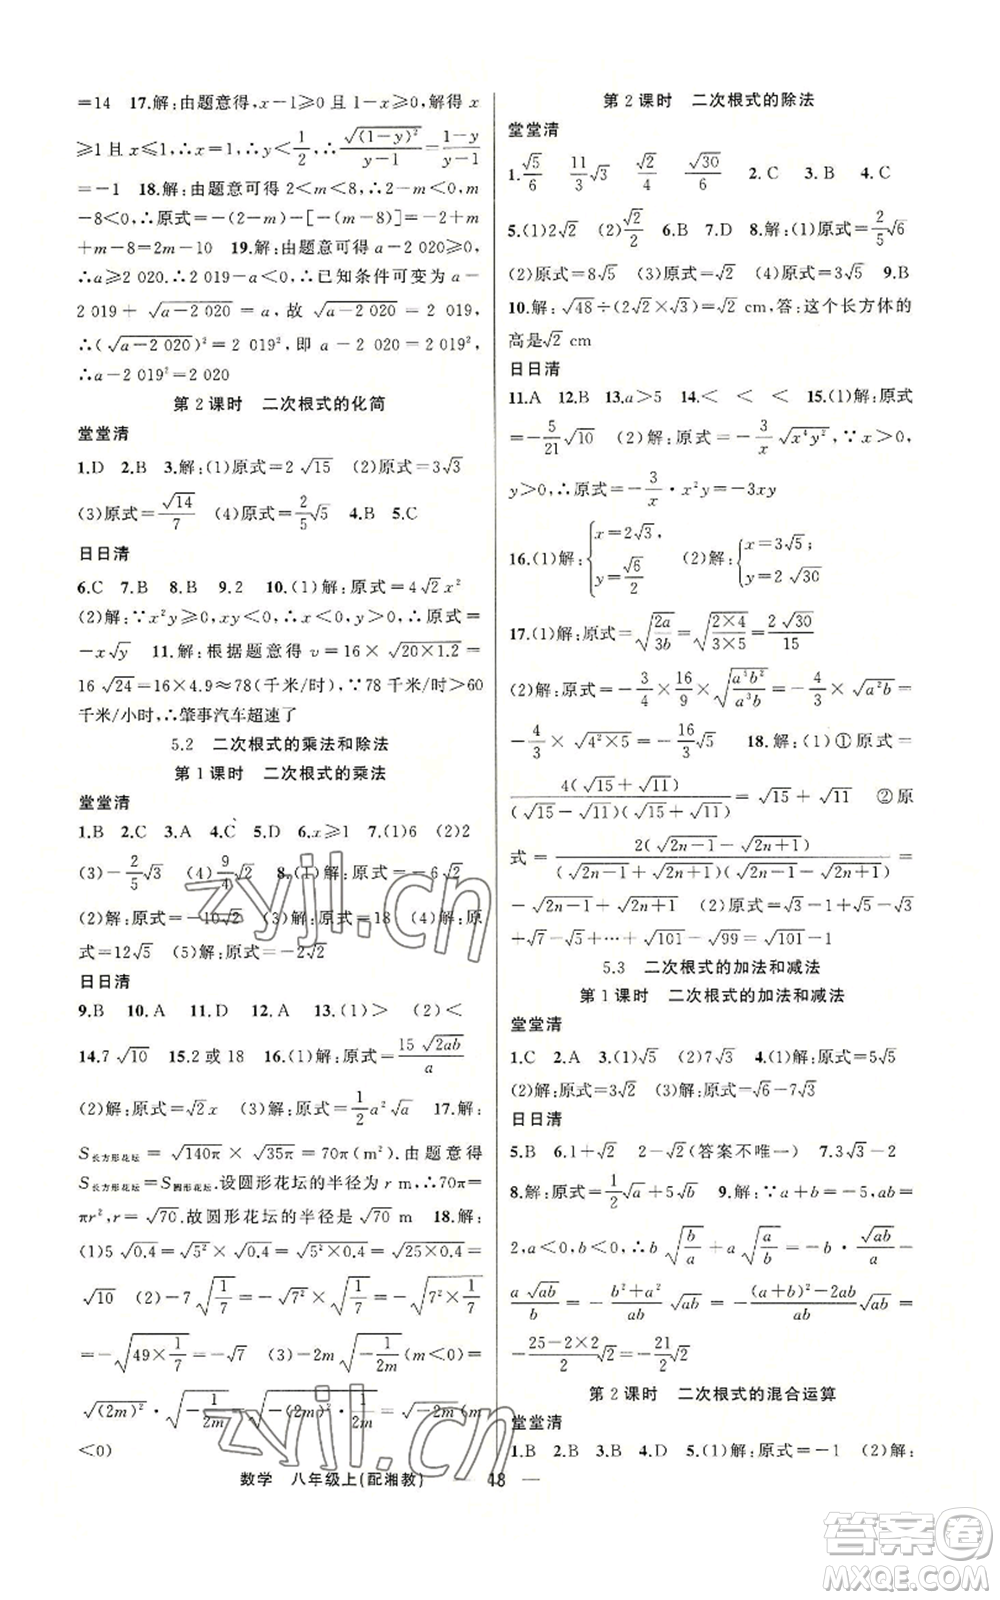 =14　17.解:由题意得,x-1≥0且1-x≥0,解得x
≥1且x≤1,∴x=1,∴y<1/2,∴√((1-y)²)/(y-1)=(1-y)/(y-1)
=-1　18.解:由题意可得2<m<8,∴2-m<0,m
-8<0,∴原式=-(2-m)-[-(m-8)]=-2+m
+m-8=2m-10　19.解:由题意可得a-2 020≥0,
∴a≥2 020.∴2 019-a<0,∴已知条件可变为a-
2 019+√(a-2 020)=a,故√(a-2 020)=2 019,
∴(√(a-2 020))²=2 019²,即a-2 020=2 019²,
∴a-2 019²=2 020
第2课时　二次根式的化简
堂堂清
1.D　2.B　3.解:(1)原式=2√15　(2)原式=3√3
(3)原式=√14/7　(4)原式=2/5√5　4.B　5.C
日日清
6.C　7.B　8.B　9.2　10.(1)解:原式=4√2x²
(2)解:∵x²y≥0,xy<0,∴y>0,x<0,∴原式=
-x√y　11.解:根据题意得v=16×√(20×1.2)=
16√24=16×4.9≈78(千米/时),∵78千米/时>60
千米/小时,∴肇事汽车超速了
5.2　二次根式的乘法和除法
第1课时　二次根式的乘法
堂堂清
1.B　2.C　3.A　4.C　5.D　6.x≥1　7.(1)6　(2)2
(3)-2/5√3　(4)9/4√2　8.(1)解:原式=-6√2
(2)解:原式=-10√2　(3)解:原式=18　(4)解:原
式=12√5　(5)解:原式=-2√2
日日清
9.B　10.A　11.D　12.A　13.(1)>　(2)<
14.7√10　15.2或18　16.(1)解:原式=15√(2ab)/a
(2)解:原式=√2x　(3)解:原式=1/2a²√a　17.解:
S长方形花坛=√(140π)×√(35π)=70π(m²).由题意得
S长方形花坛=S圆形花坛.设圆形花坛的半径为r m,∴70π=
πr²,r=√70.故圆形花坛的半径是√70 m　18.解:
(1)5√0.4=√5²×√0.4=√(5²×0.4)=√(25×0.4)=
√10　(2)-7√(1/7)=-√7²×√(1/7)=-√(7²×1/7)
=-√(49×1/7)=-√7　(3)-2m√(-1/2m)(m<0)=
√((2m)²)·√(-1/2m)=√(-(2m)²·1/2m)=√(-2m)(m
<0)
数学　八年级上(配湘教)　48
第2课时　二次根式的除法
堂堂清
1.√5/6　11/3√3　√2/4　√30/6　2.C　3.B　4.C
5.(1)2√2　(2)√2/2　6.B　7.D　8.解:(1)原式=2/5√6
(2)原式=8√5　(3)原式=√2　(4)原式=3√5　9.B
10.解:√48÷(2√2×√3)=√2 cm,答:这个长方体的
高是√2 cm
日日清
11.A　12.B　13.a>5　14.<　<　<　15.(1)解:原式
=-5/21√10　(2)解:原式=-3/x√(x⁴y²),∵x>0,
y>0,∴原式=-3/x·x²y=-3xy
16.(1)解:{x=2√3,y=√6/2　(2)解:{x=3√5;y=2√30
17.(1)解:原式=√(2a/3b)=√((2×4)/(3×5))=2√30/15
(2)解:原式=-3/4×16/9×√(a⁴b²/a³b)=-4/3×√(a²b)=
-4/3×√(4²×5)=-16/3√5　18.解:(1)①原式=
4(√15+√11)/((√15-√11)(√15+√11))=√15+√11　②原
式=2(√(2n-1)-√(2n+1))/((√(2n-1)+√(2n+1))(√(2n-1)-√(2n+1)))
=√(2n+1)-√(2n-1)　(2)原式=√3-1+√5-√3
+√7-√5+…+√101-√99=√101-1
5.3　二次根式的加法和减法
第1课时　二次根式的加法和减法
堂堂清
1.C　2.A　3.(1)√5　(2)7√3　4.(1)解:原式=5√5
(2)解:原式=√5　(3)解:原式=3√2　(4)解:原式=√6-7√3
日日清
5.B　6.1+√2　2-√2(答案不唯一)　7.3√3-2
8.解:原式=1/2√a+5√5　9.解:∵a+b=-5,ab=
2,a<0,b<0,∴b√(b/a)+a√(a/b)=-b·√(ab)/a-
a√(ab)/b=-(b²+a²)/ab√(ab)=-((a+b)²-2ab)/ab√(ab)=
-(25-2×2)/2√2=-21/2√2
第2课时　二次根式的混合运算
堂堂清
1.B　2.D　3.B　4.A　5.(1)解:原式=-1　(2)解:
zyjl.cn
zyjl.cn
答案卷
MXQE.COM